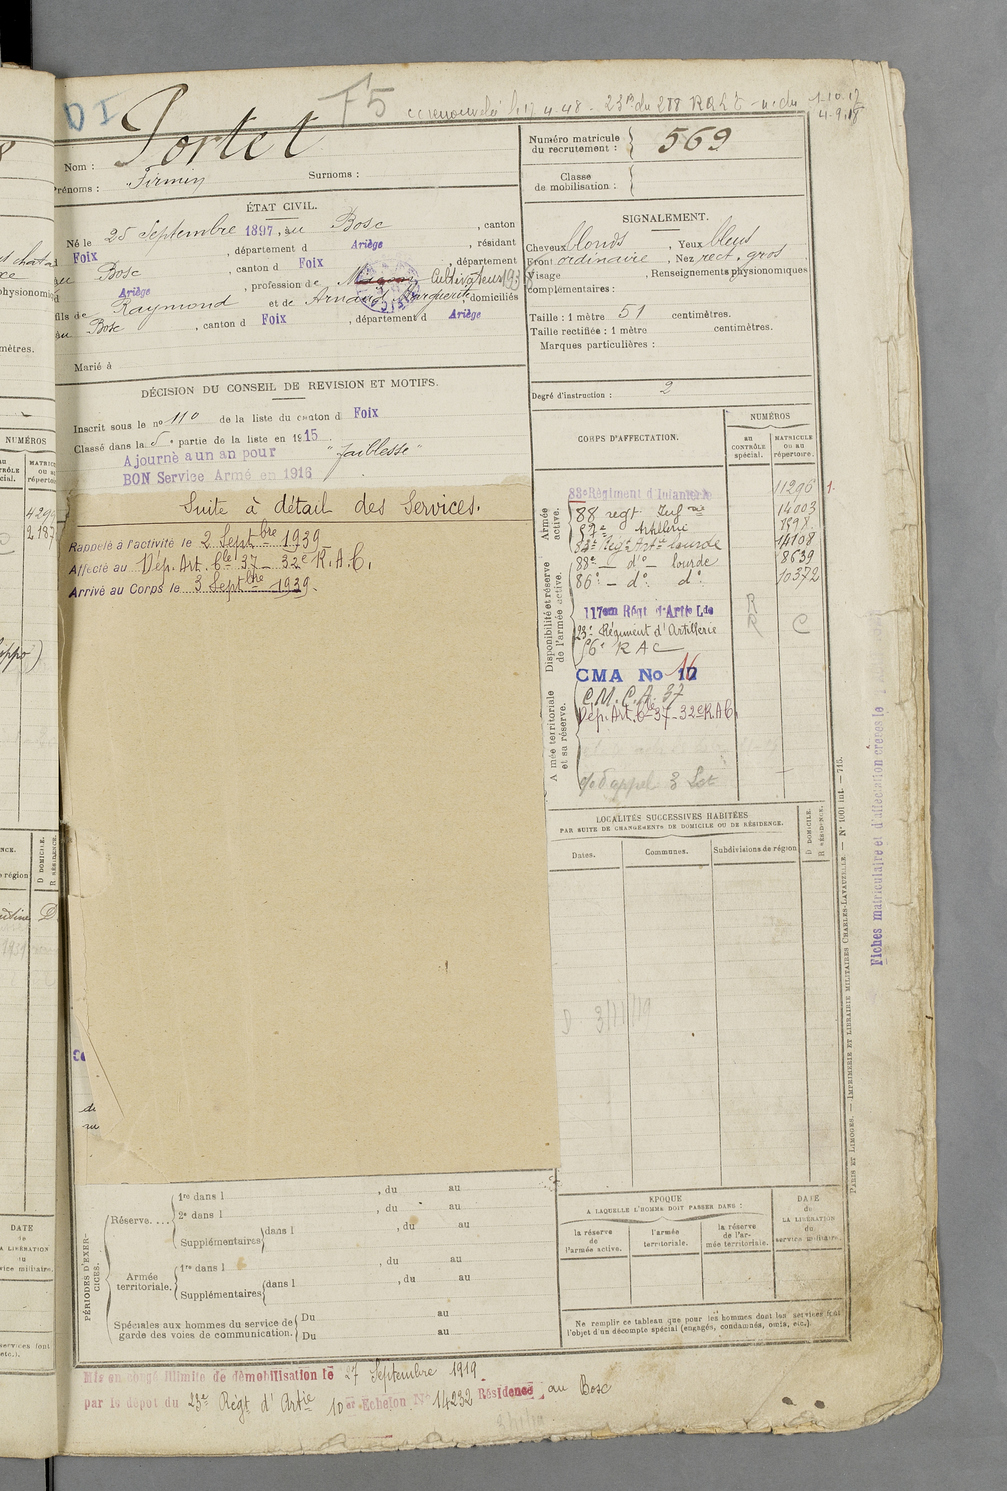 D I
F5
1-10-17
4.9.18
Nom : Portet
Prénoms : Firmin Surnoms :
ÉTAT CIVIL.
Né le 25 Septembre 1897, au Bosc, canton
d Foix, département d Ariège, résidant
Bosc, canton d Foix, département
Ariège, profession de Cultivateur
fils de Raymond et de Arnaud Marguerite, domiciliés
au Bosc, canton d Foix, département d Ariège
Marié à
DÉCISION DU CONSEIL DE REVISION ET MOTIFS.
Inscrit sous le no 110 de la liste du canton d Foix
Classé dans la 5e partie de la liste en 1915
Ajourné a un an pour "faiblesse"
BON Service Armé en 1916
Suite à détail des Services.
Rappelé à l'activité le 2 Septbre 1939
Affecté au Dép. Art. ble 37 - 32e R.A.C.
Arrivé au Corps le 3 Septbre 1939.
Numéro matricule
du recrutement : 569
Classe
de mobilisation :
SIGNALEMENT.
Cheveux blonds, Yeux bleus
Front ordinaire, Nez rect. gros
Visage , Renseignements physionomiques
complémentaires :
Taille : 1 mètre 51 centimètres.
Taille rectifiée : 1 mètre centimètres.
Marques particulières :
Degré d'instruction : 2
CORPS D'AFFECTATION.
NUMÉROS
au
CONTRÔLE
spécial.
MATRICULE
OU AU
répertoire.
Armée
active.
Disponibilité et réserve
de l'armée active.
Armée territoriale
et sa réserve.
83e Régiment d'Infanterie 11296 1.
88 regt Infrie 14003
57e Artillerie 1898
82e Régt Artie lourde 14108
88e — do — lourde 8639
86e — do. do. 10372
117em Régt d'Artie Lde R
23e Régiment d'Artillerie R C
56e RAC
CMA No 16
C.M.C.A. 37
Dép. Art. ble 37 - 32e R.A.C.
LOCALITÉS SUCCESSIVES HABITÉES
PAR SUITE DE CHANGEMENTS DE DOMICILE OU DE RÉSIDENCE.
Dates.
Communes.
Subdivisions de région
D DOMICILE.
R RÉSIDENCE.
PÉRIODES D'EXERCICES.
Réserve.... 1re dans l , du au
2e dans l , du au
Supplémentaires dans l , du au
Armée
territoriale. 1re dans l , du au
Supplémentaires dans l , du au
Spéciales aux hommes du service de
garde des voies de communication. Du au
Du au
EPOQUE
A LAQUELLE L'HOMME DOIT PASSER DANS :
la réserve
de
l'armée active.
l'armée
territoriale.
la réserve
de l'ar-
mée territoriale.
DATE
de
LA LIBÉRATION
du
service militaire.
Ne remplir ce tableau que pour les hommes dont les services font
l'objet d'un décompte spécial (engagés, condamnés, omis, etc.).
Mis en congé illimité de démobilisation le 27 Septembre 1919
par le dépôt du 23e Régt d'Artie 10er Echelon No 14232 Résidence au Bosc
PARIS ET LIMOGES. — IMPRIMERIE ET LIBRAIRIE MILITAIRES CHARLES-LAVAUZELLE. — No 1001 int. — 715.
Fiches matriculaire et d'affectation créées le